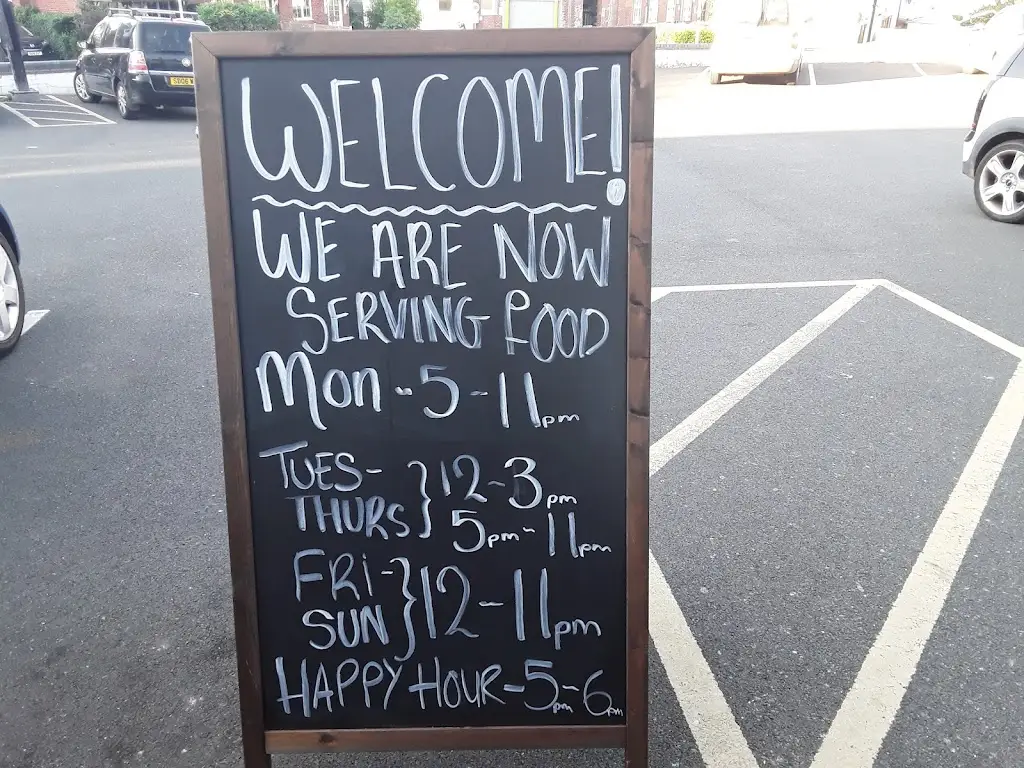 WELCOME!
WE ARE NOW
SERVING FOOD
Mon - 5 - 11pm
TUES - } 12 - 3pm
THURS } 5pm - 11pm
FRI - } 12 - 11pm
SUN
HAPPY HOUR - 5pm - 6pm